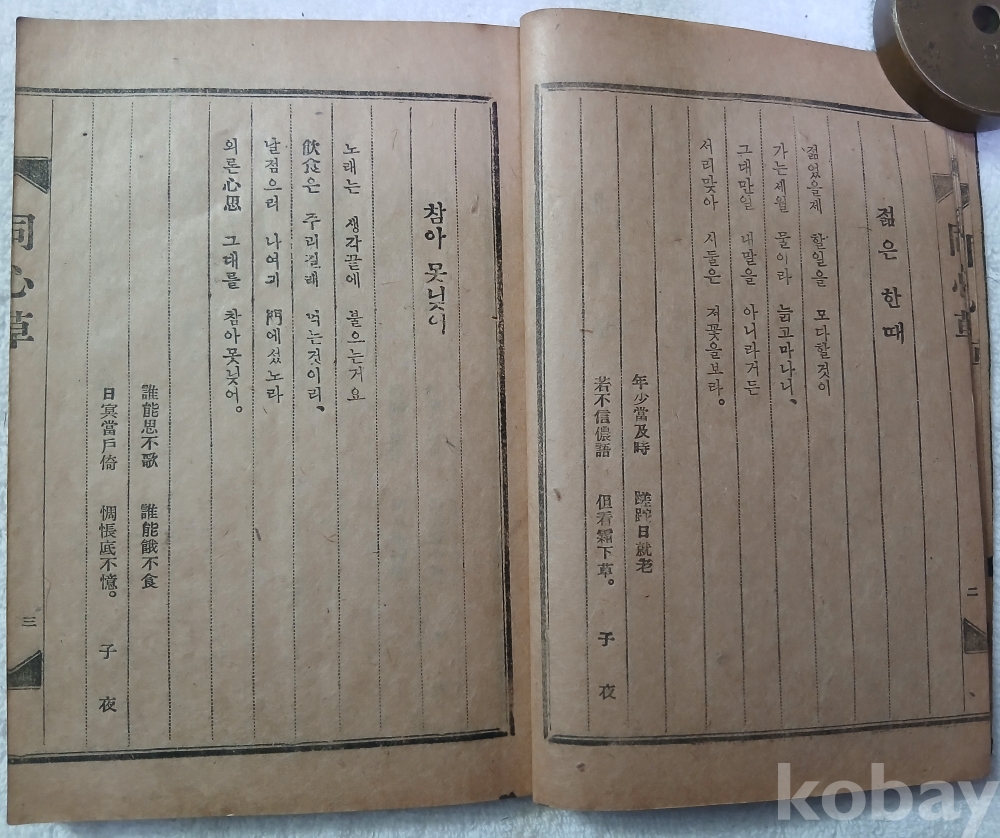 젊은 한때
젊었을제 할일을 모다할것이
가는세월 물이라 늙고마나니、
그대만일 내말을 아니라거든
서리맞아 시들은 저꽃을보라。
年少當及時 蹉跎日就老
若不信儂語 但看霜下草。 子夜
二
참아 못닞어
노래는 생각끝에 불으는거요
飮食은 주리길래 먹는것이리、
날점으리 나여긔 門에섰노라
의론心思 그대를 참아못닞어。
誰能思不歌 誰能餓不食
日冥當戶倚 惆悵底不憶。 子夜
同心草
三
kobay